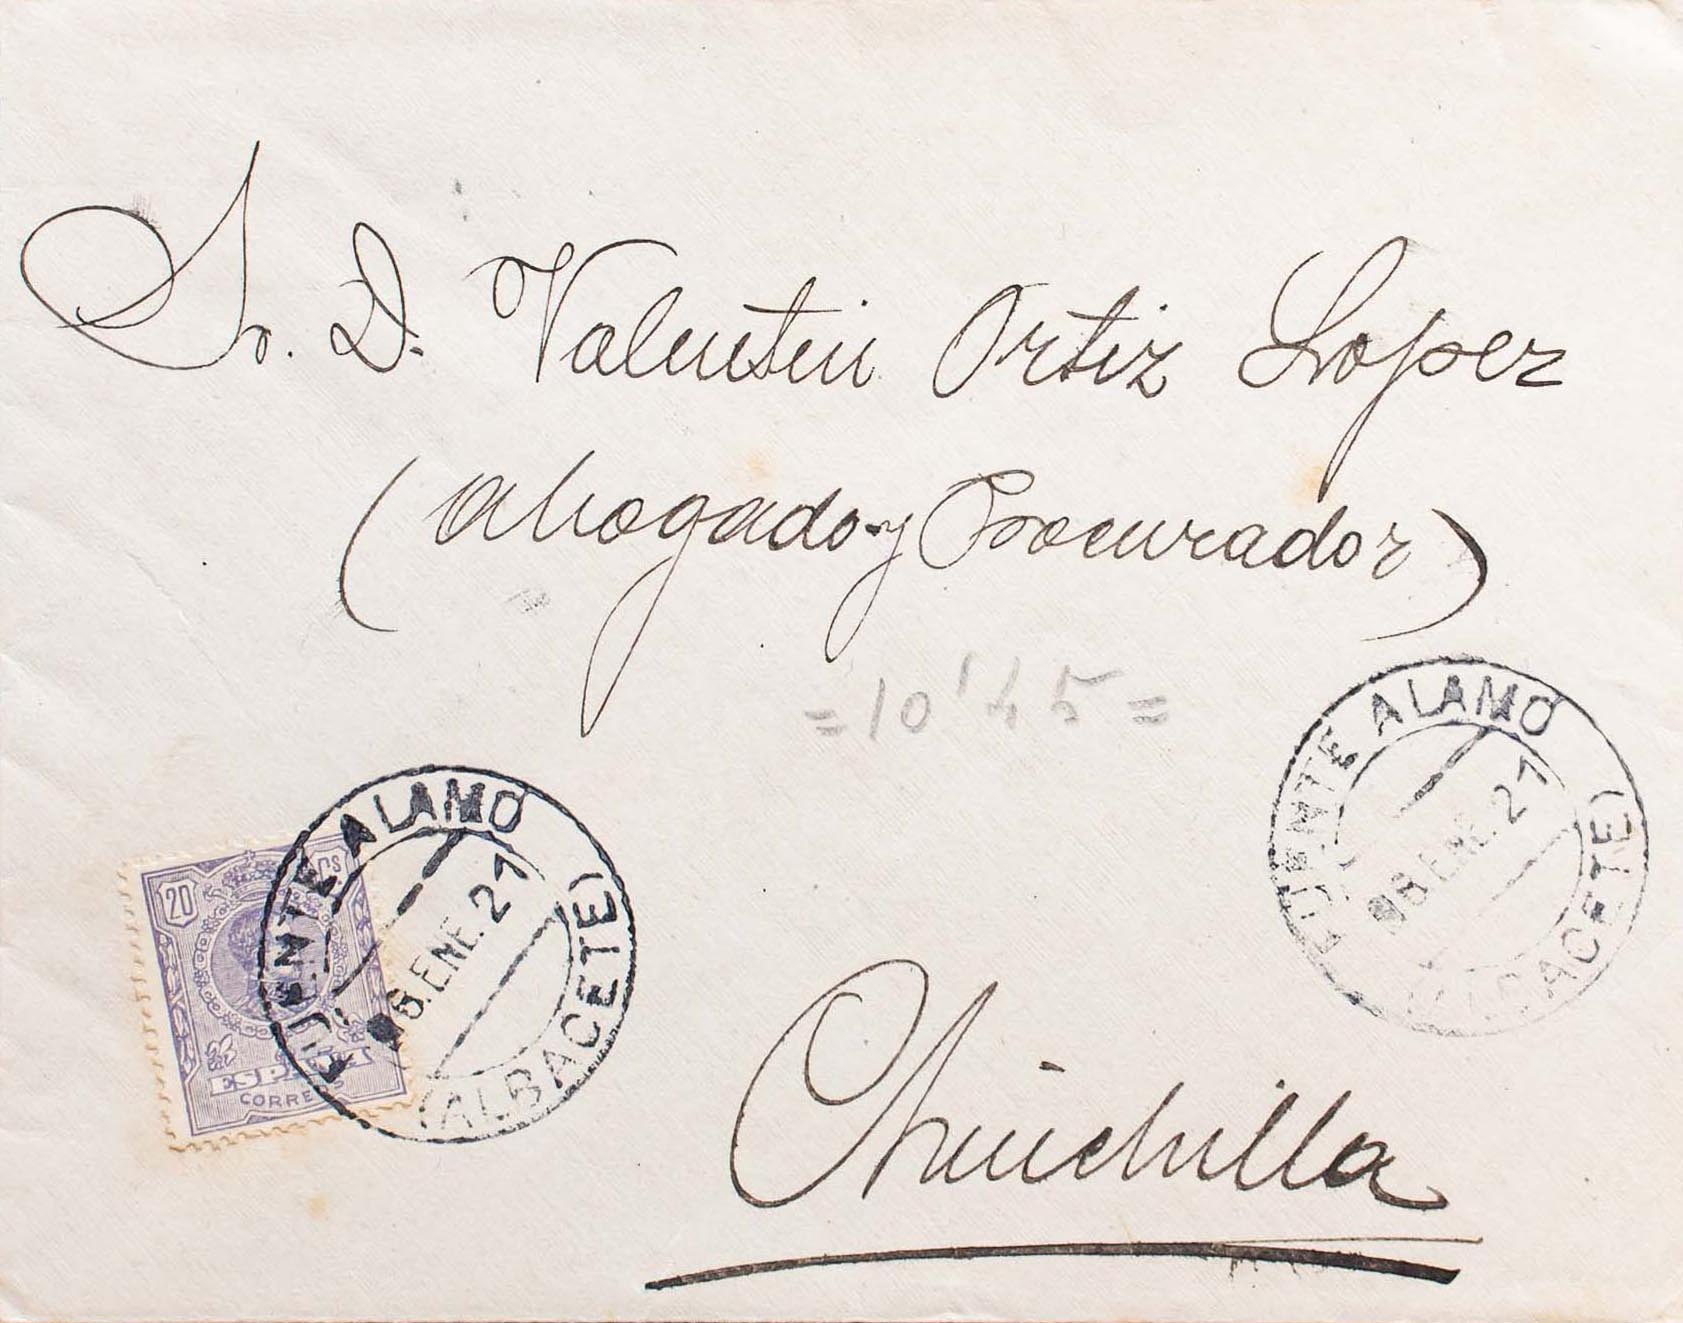 Sr. D. Valentin Ortiz Lopez
(Abogado y Procurador)
=10'45=
FUENTE ALAMO
8.ENE.21
(ALBACETE)
FUENTE ALAMO
8.ENE.21
(ALBACETE)
20 Cs
ESPAÑA
CORREOS
Chinchilla